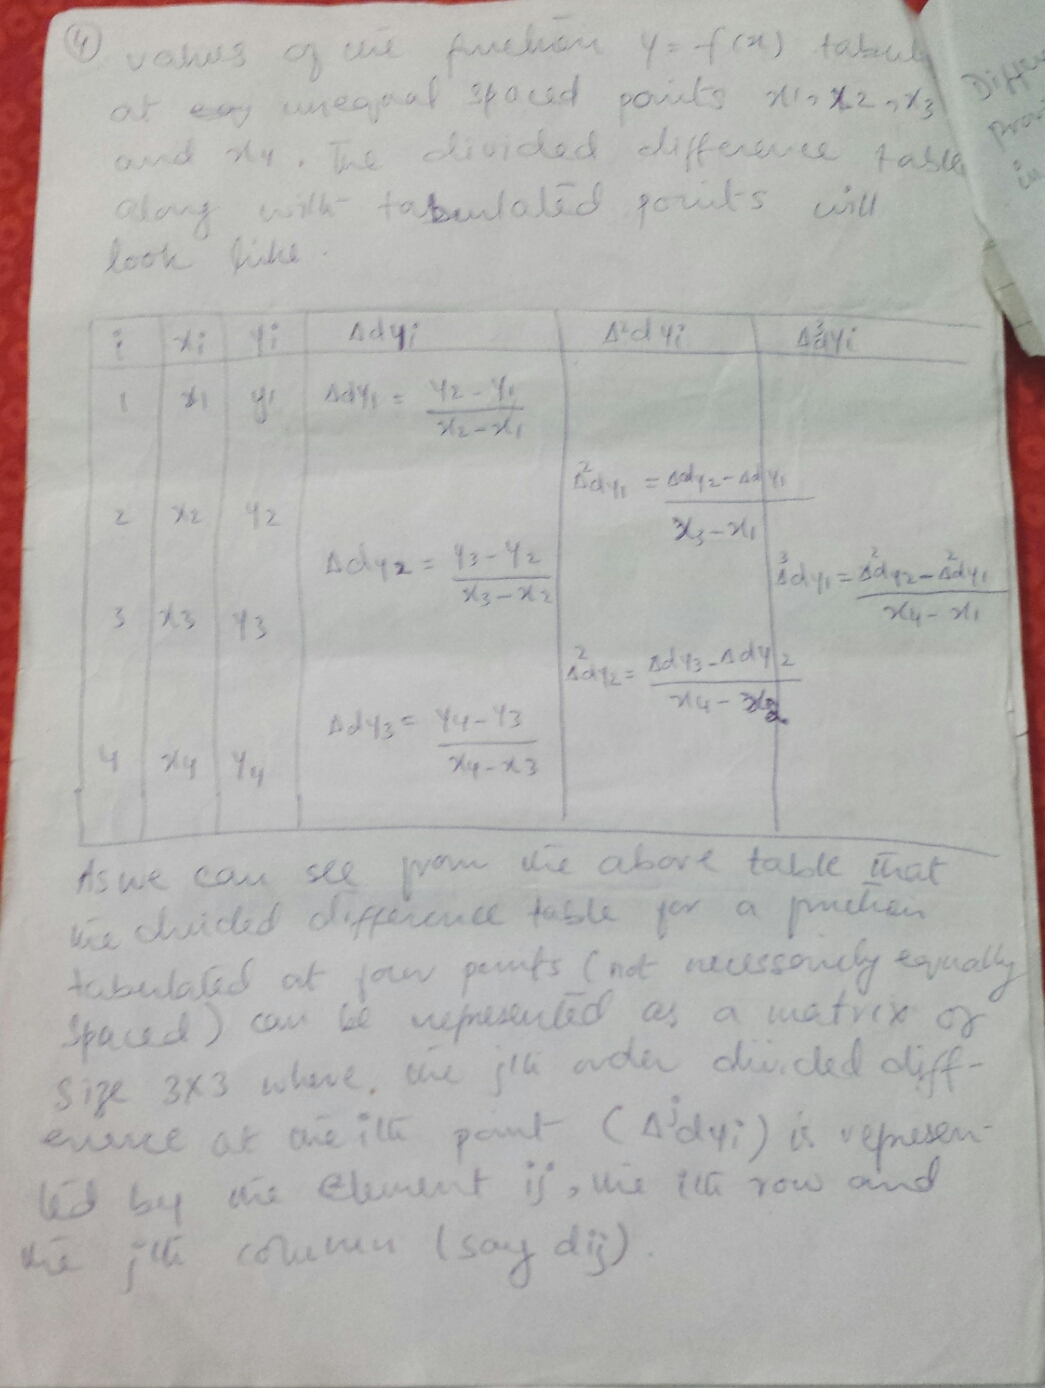 ④ values of the function y = f(x) tabul
at unequal spaced points x1, x2, x3
and x4. The divided difference table
along with tabulated points will
look like.
Differ
in
i xi yi Δdyi Δ²dyi Δ³dyi
1 x1 y1 Δdy1 = y2 - y1 / x2 - x1
Δ²dy1 = Δdy2 - Δdy1 / x3 - x1
2 x2 y2
Δdy2 = y3 - y2 / x3 - x2
Δ³dy1 = Δ²dy2 - Δ²dy1 / x4 - x1
3 x3 y3
Δ²dy2 = Δdy3 - Δdy2 / x4 - x2
Δdy3 = y4 - y3 / x4 - x3
4 x4 y4
As we can see from the above table that
the divided difference table for a function
tabulated at four points (not necessarily equally
spaced) can be represented as a matrix of
size 3x3 where the jth order divided diff-
erence at the ith point (Δʲdyi) is represen-
ted by the element ij, the ith row and
the jth column (say dij).